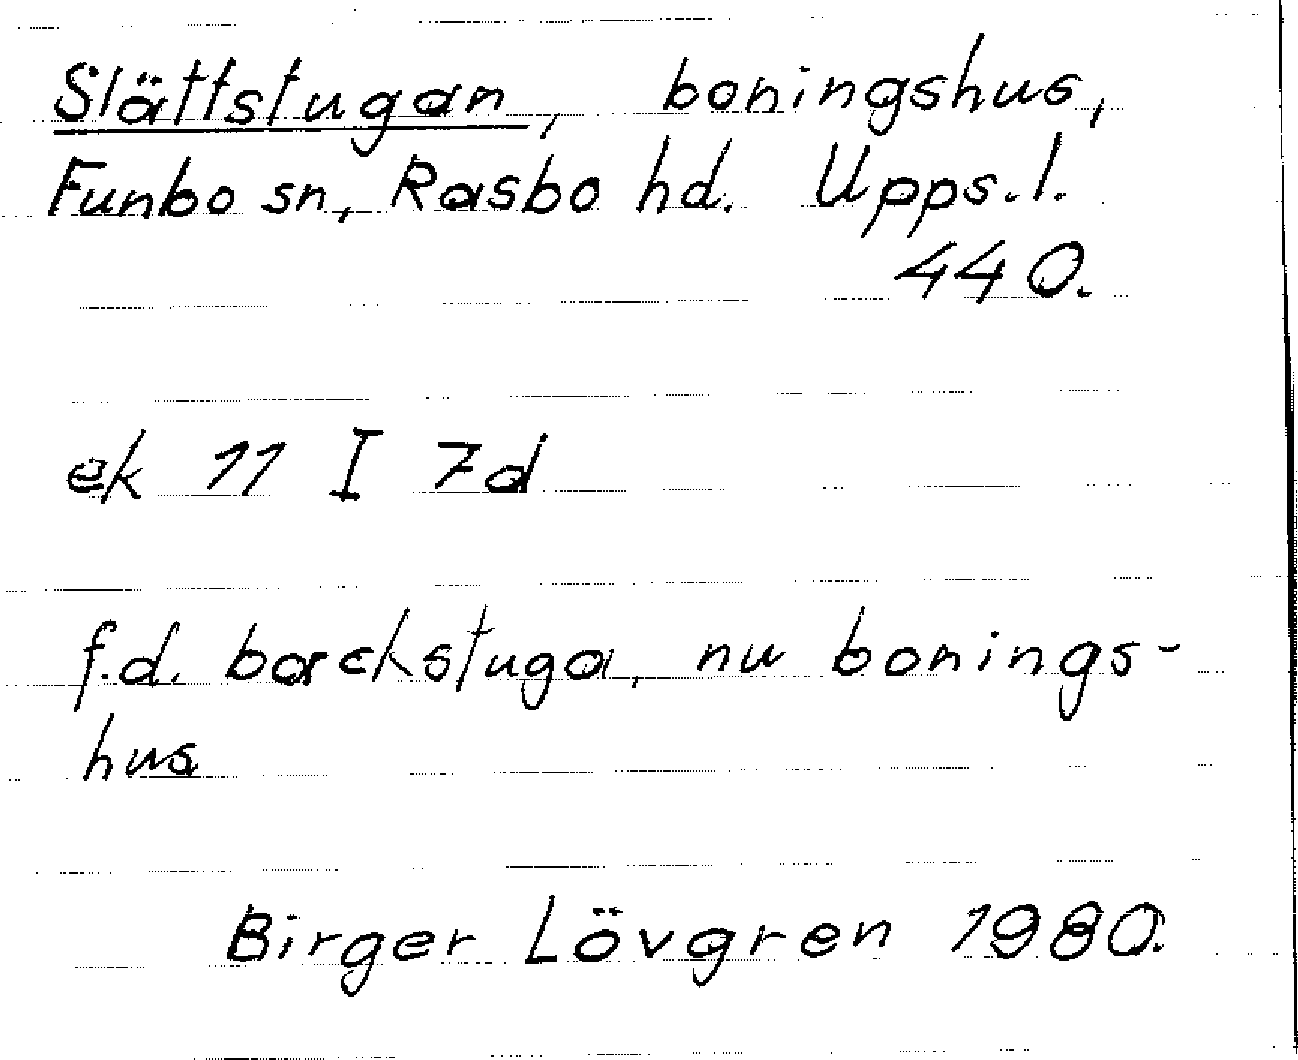 Slättstugan, boningshus,
Funbo sn, Rasbo hd. Upps.l.
440.
ek 11 I 7d
f.d. backstuga, nu bonings-
hus
Birger Lövgren 1980.